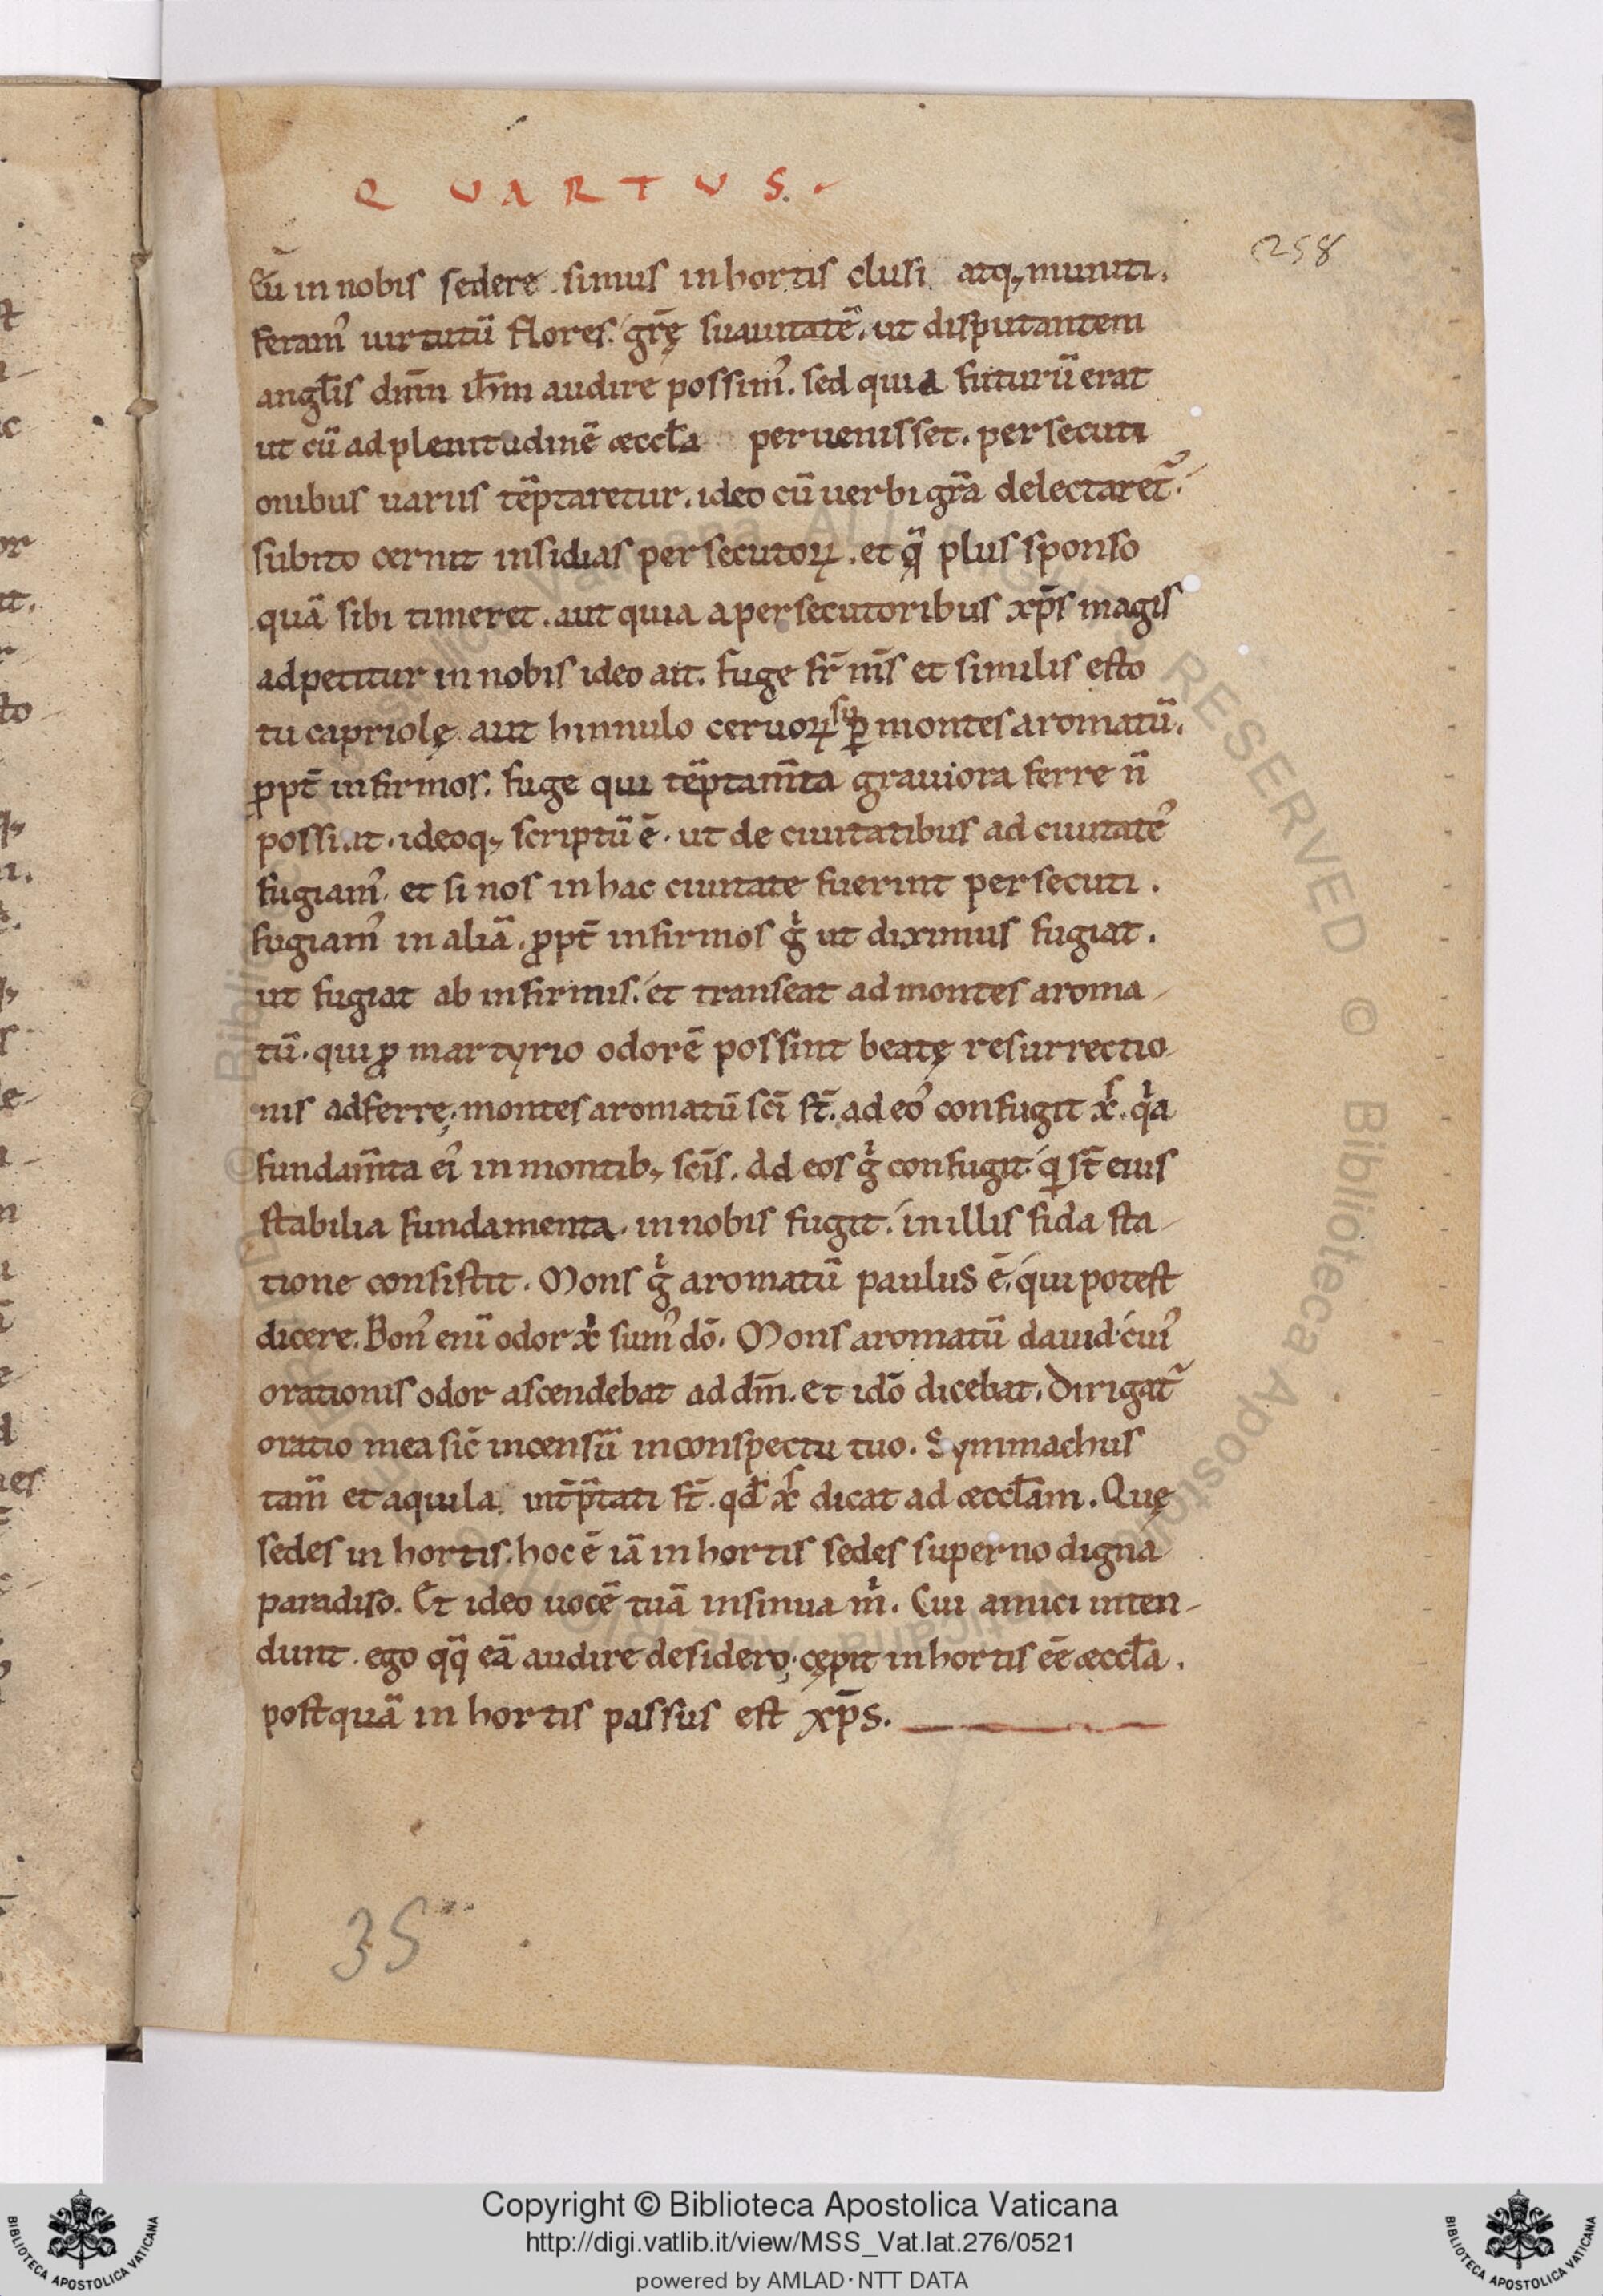 QUARTUS.
258
Eũ in nobis sedere. simus in hortis clusi atq; muniti.
feram᾽ uirtutũ flores. grę̃ suauitatẽ. ut disputantem
angl̃is dñm ih̃m audire possim᾽. sed quia futurũ erat
ut cũ ad plenitudinẽ æccl̃a peruenisset. persecuti
onibus uariis tẽptaretur. ideo cũ uerbi gr̃a delectaret᷑.
subito cernit insidias persecutoꝝ. et q̃ plus sponso
quã sibi timeret. aut quia a persecutoribus xp̃s magis
adpetitur in nobis ideo ait. fuge fr̃ nr̃s et similis esto
tu capriolę aut hinnulo ceruoꝝ suꝑ montes aromatũ.
ꝓpt̃ infirmos. fuge qui tẽptam̃ta grauiora ferre ñ
possiut. ideoq; scriptũ ẽ. ut de ciuitatibus ad ciuitatẽ
fugiam᾽. et si nos in hac ciuitate fuerint persecuti.
fugiam᾽ in aliã. ꝓpt̃ infirmos gͦ ut diximus fugiat.
ut fugiat ab infirmis. et transeat ad montes aroma-
tũ. qui ꝓ martyrio odorẽ possint beatę resurrectio-
nis adferrę. montes aromatũ sc̃i st̃. ad eo᾽ confugit xͬs. qͥa
fundam̃ta ei᾽ in montib; sc̃is. Ad eos gͦ confugit. q st̃ eius
stabilia fundamenta. in nobis fugit. in illis fida sta-
tione consistit. Mons gͦ aromatũ paulus ẽ. qui potest
dicere. Bon᾽ enĩ odor xͥ sum᾽ dõ. Mons aromatũ dauid. cui᾽
orationis odor ascendebat ad dm̃. et idõ dicebat. Dirigat᷑
oratio mea sic̃ incensũ in conspectu tuo. Symmachus
tam̃ et aquila int̃p̃tati st̃. qd̃ xͬs dicat ad æccl̃am. Quę
sedes in hortis. hoc ẽ iã in hortis sedes superno digna
paradiso. Et ideo uocẽ tuã insinua mͥ. Cui amici inten-
dunt. ego qq̃ eã audire desidero. cępit in hortis eẽ æccl̃a.
postquã in hortis passus est xp̃s.
35
Copyright © Biblioteca Apostolica Vaticana
http://digi.vatlib.it/view/MSS_Vat.lat.276/0521
powered by AMLAD·NTT DATA
BIBLIOTECA APOSTOLICA VATICANA
BIBLIOTECA APOSTOLICA VATICANA